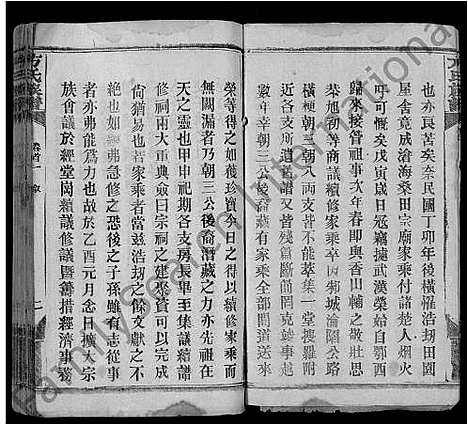 也亦艮苦矣奈民國丁卯年後橫罹浩刼田園
屋舍竟成滄海桑田宗廟家乘付諸楚人烟火
吁可慨矣戊寅歲日冠竊據武漢榮始自鄂西
歸來接管祖事次年春即與香山輔之敬壯思
棻旭初等商議續修家乘卒因菊城淪陷公路
橫梗朝五朝八兩支皆不能萃集一堂搜羅附
近各支所遺舊譜又皆殘篇斷簡罔克竣事越
數年幸朝三公後裔藏有家乘全部間道送來
榮等得之如獲珍寶今日之得以續修家乘而
無闕漏者乃朝三公後裔潛藏之力亦先祖在
天之靈也甲申祀期各支房長畢至集議續譜
修祠兩大重典僉曰宗祠之建聚資可以完成
尙猶易也若家乘者當兹浩刼之餘文獻之不
絶也如線弗急修之恐後之子孫雖有志從事
者亦弗能為力也故於乙酉元月念日擴大宗
族會議於經堂岡續議修譜暨籌措經濟事務
方氏族譜
卷首一
敘
二
Family Search International